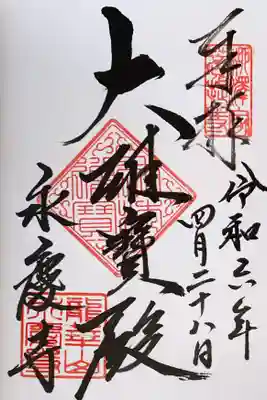 奉拝
令和六年
四月二十八日
大雄寶殿
永慶寺